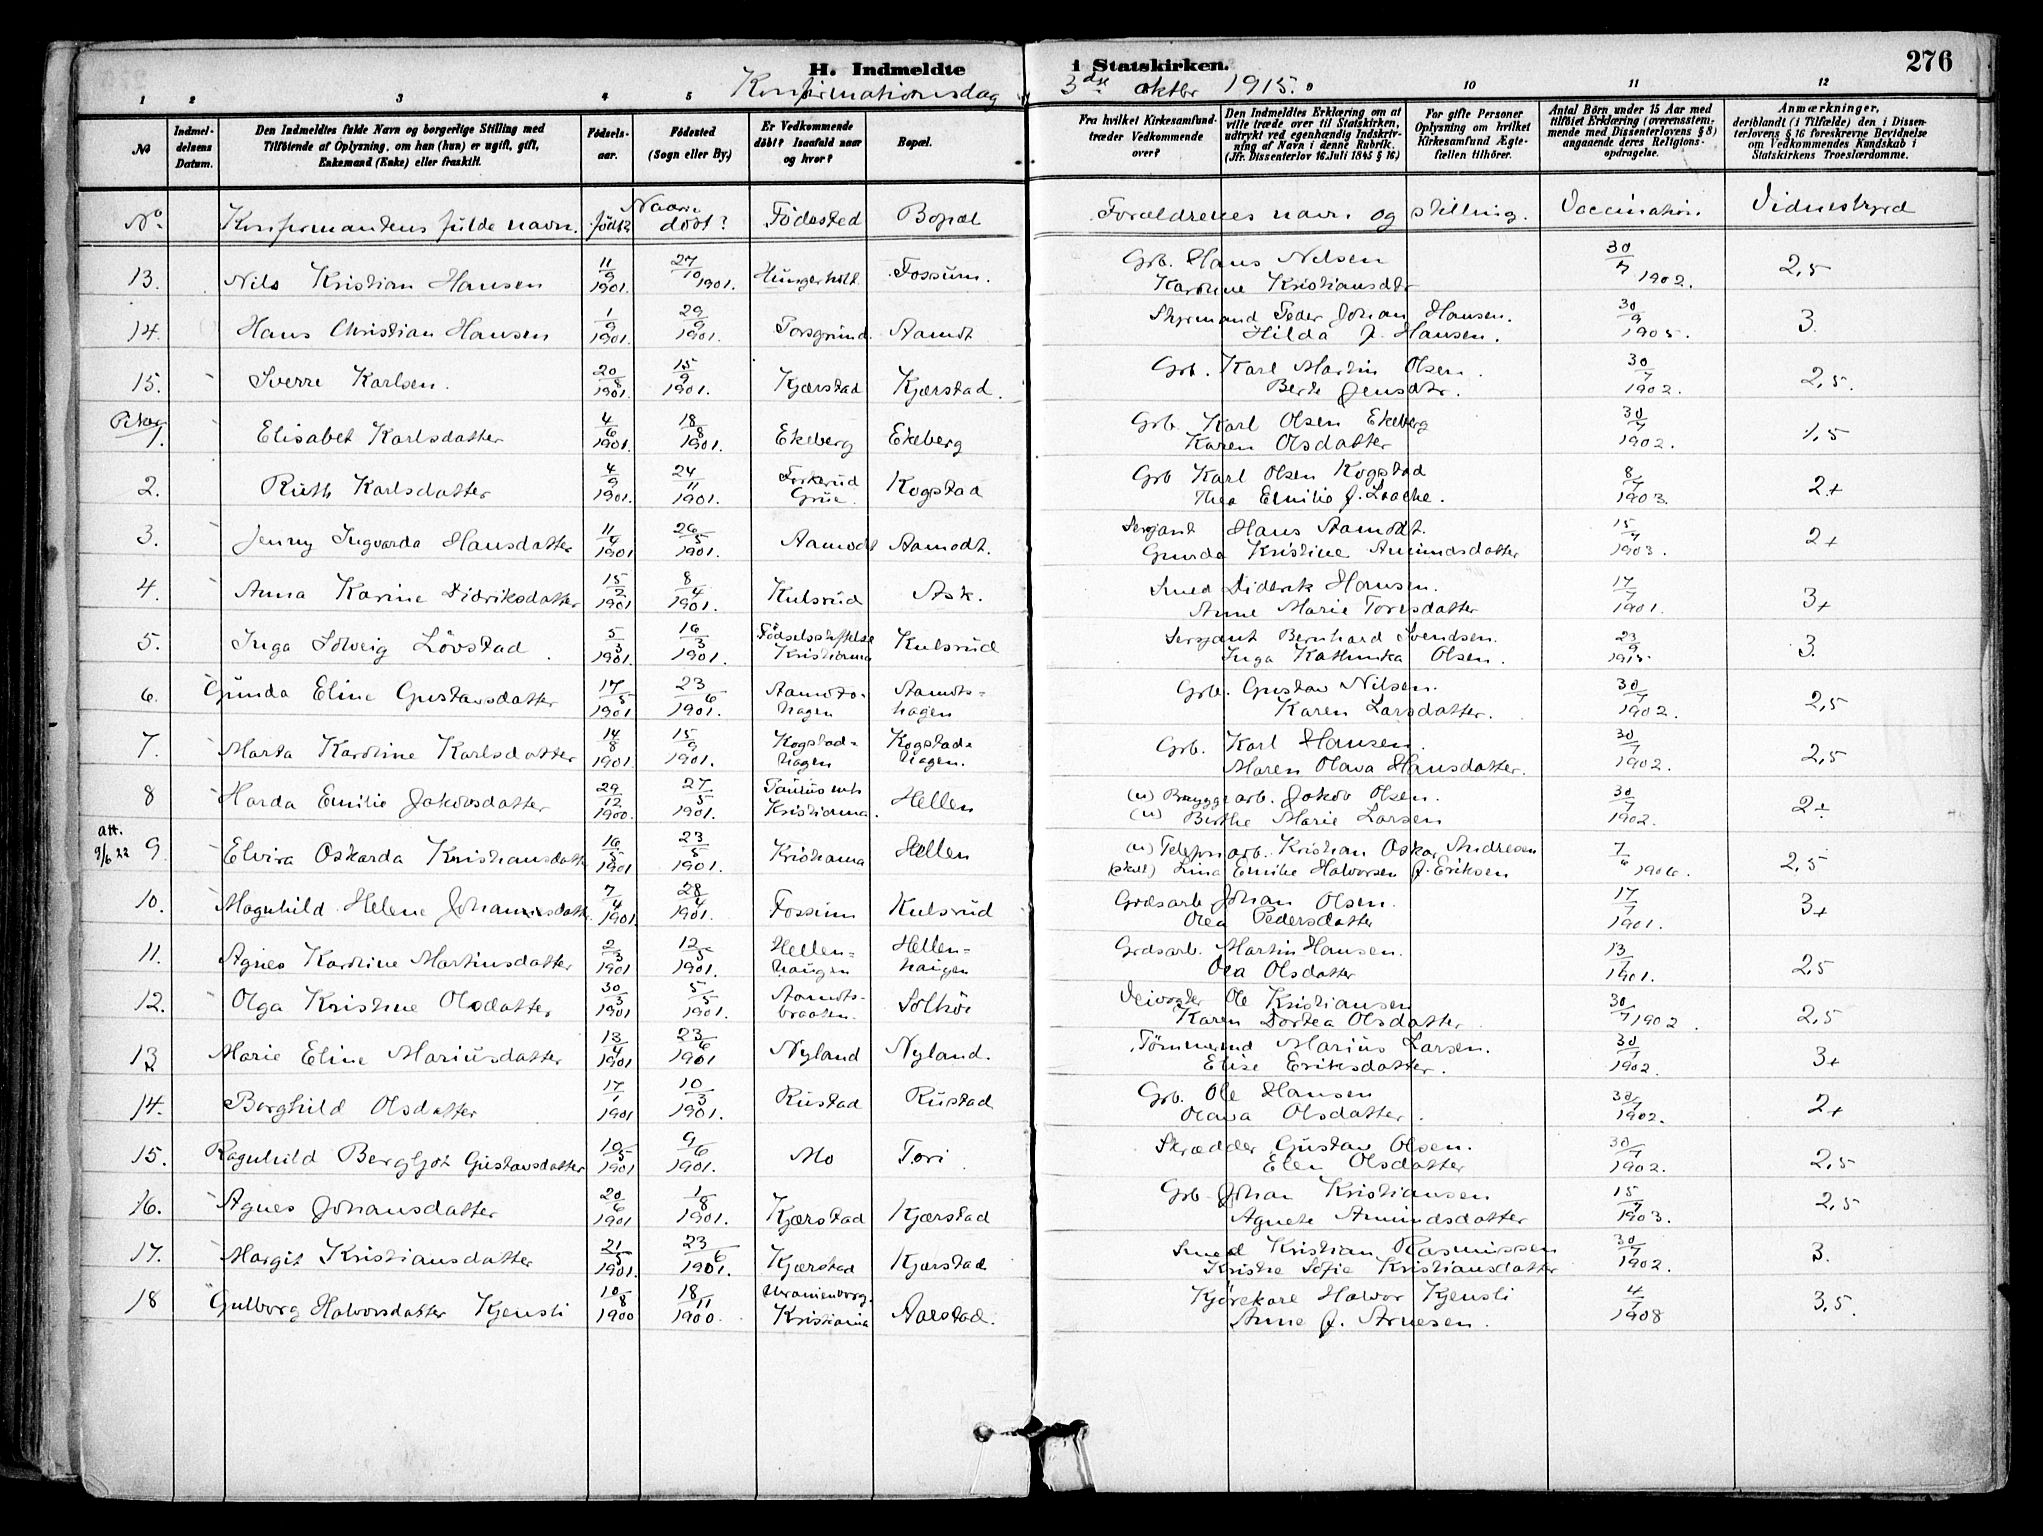 276
H. Indmeldte i Statskirken.
Konfirmationsdag 3die oktbr 1915.
1 2 3 4 5 10 11 12
No
Indmel-
delsens
Datum.
Den Indmeldtes fulde Navn og borgerlige Stilling med
Tilføiende af Oplysning, om han (hun) er ugift, gift,
Enkemand (Enke) eller fraskilt.
Fødsels-
aar.
Fødested
(Sogn eller By.)
Er Vedkommende
døbt? Isaafald naar
og hvor?
Bopæl.
Fra hvilket Kirkesamfund
træder Vedkommende
over?
Den Indmeldtes Erklæring om at
ville træde over til Statskirken,
udtrykt ved egenhændig Indskriv-
ning af Navn i denne Rubrik.
(Jfr. Dissenterlov 16 Juli 1845 § 16)
For gifte Personer
Oplysning om hvilket
Kirkesamfund Ægte-
fællen tilhører.
Antal Børn under 15 Aar med
tilføiet Erklæring (overensstem-
mende med Dissenterlovens § 8)
angaaende deres Religions-
opdragelse.
Anmærkninger,
deriblandt (i Tilfælde) den i Dissen-
terlovens § 16 foreskrevne Bevidnelse
om Vedkommendes Kundskab i
Statskirkens Troeslærdomme.
No. Konfirmantens fulde navn. født? Naar døbt? Fødested Bopæl Forældrenes navn og stilling. Vaccination Vidnesbyrd
13. Nils Kristian Hansen 11/9 1901. 27/10 1901. Hungerholt Fossum. Grb. Hans Nilsen
Karoline Kristiansdtr 30/7 1902. 2,5
14. Hans Christian Hansen 1/9 1901. 29/9 1901. Porsgrund Aamodt Styrmand Peder Johan Hansen.
Hilda J. Hansen. 30/9 1905. 3.
15. Sverre Karlsen. 20/8 1901. 15/9 1901. Kjærstad Kjærstad. Grb. Karl Martin Olsen.
Berte Jensdtr. 30/7 1902. 2,5.
Piker
1. Elisabet Karlsdatter 4/6 1901. 18/8 1901. Ekeberg Ekeberg Grb. Karl Olsen Ekeberg
Karen Olsdatter 30/7 1902. 1,5
2. Ruth Karlsdatter 4/9 1901. 24/11 1901. Grue. Kogstad Grb Karl Olsen Kogstad
Thea Emilie J. 8/7 1903. 2+
3. Jenny Ingvarda Hansdatter 11/4 1901 26/5 1901. Aamodt Aamodt. Sersjant Hans Aamodt.
Gunda Kristine Amundsdatter 15/7 1903. 2+
4. Anna Karine Didriksdatter 15/2 1901 8/4 1901. Kulsrud Ask. Smed Diderik Hansen.
Anne Marie Toresdatter 17/7 1901. 3+
5. Inga Solveig Lövstad 5/3 1901. 16/3 1901. Födselsstiftelse
Kristiania Kulsrud Sersjant Bernhard Svendsen.
Inga Kathinka Olsen. 23/9 1915 3.
6. Gunda Eline Gustavsdatter 17/5 1901 23/6 1901. Aamodts-
hagen Aamodts-
hagen Grb. Gustav Nilsen.
Karen Larsdatter. 30/7 1902. 2,5
7. Marta Karoline Karlsdatter 14/8 1901. 15/9 1901. Kogstad-
hagen Kogstad-
hagen. Grb. Karl Hansen.
Maren Olava Hansdatter. 30/7 1902. 2,5
8 Harda Emilie Jakobsdatter 29/12 1900. 27/5 1901. Paulus mh
Kristiania. Hellen (u) Bryggearb. Jakob Olsen.
(u) Birthe Marie Larsen 30/7 1902. 2+
att.
9/6 22
9. Elvira Oskarda Kristiansdatt 16/5 1901 23/5 1901. Kristiania Hellen (u) Telefonarb. Kristian Oskar Andresen
(skilt) Lina Emilie Halvorsen f. Eriksen 7/6 1906. 2,5
10. Magnhild Helene Johannesdatt. 7/4 1901. 28/4 1901. Fossum Kulsrud Grdsarb Johan Olsen.
Olea Pedersdatter 17/7 1901. 3+
11. Agnes Karoline Martinsdatter 2/3 1901 12/5 1901. Hellen-
haugen Hellen-
haugen Grdsarb. Martin Hansen.
Olea Olsdatter 13/7 1901. 2,5
12. Olga Kristine Olsdatter 30/3 1901 5/5 1901. Aamodts-
braaten. Solhöi Veivogter Ole Kristiansen
Karen Dortea Olsdatter 30/7 1902. 2,5
13 Marie Eline Mariusdatter 13/4 1901 23/6 1901 Nyland Nyland. Tömmermd Marius Larsen.
Elise Eriksdatter. 30/7 1902. 3+
14. Borghild Olsdatter 17/1 1901 10/3 1901. Rustad Rustad Grb. Ole Hansen
Olava Olsdatter. 30/7 1902. 2+
15. Ragnhild Bergljot Gustavsdatter 10/5 1901 9/6 1901. Mo Tori Skrædder Gustav Olsen.
Elen Olsdatter 30/7 1902. 2,5
16. Agnes Johansdatter 20/6 1901 1/8 1901. Kjærstad Kjærstad Grb. Johan Kristiansen
Agnete Amundsdatter 15/7 1903. 2,5
17. Margit Kristiansdatter 21/5 1901. 23/6 1901. Kjærstad Kjærstad Smed Kristian Rasmussen
Kristie Sofie Kristiansdatter 30/7 1902. 3.
18 Gulborg Halvorsdatter Kjensli 10/8 1900 18/11 1900. Uranienborg.
Kristiania Aarstad. Kjörekarl Halvor Kjensli
Anne f. Arnesen. 4/7 1908 3,5.